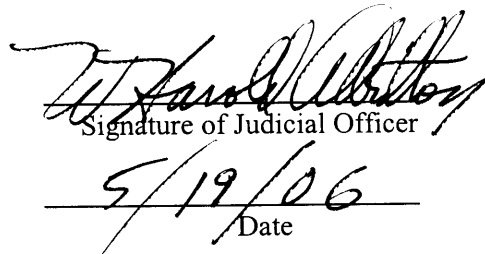 W Harold Albritton
Signature of Judicial Officer
5/19/06
Date